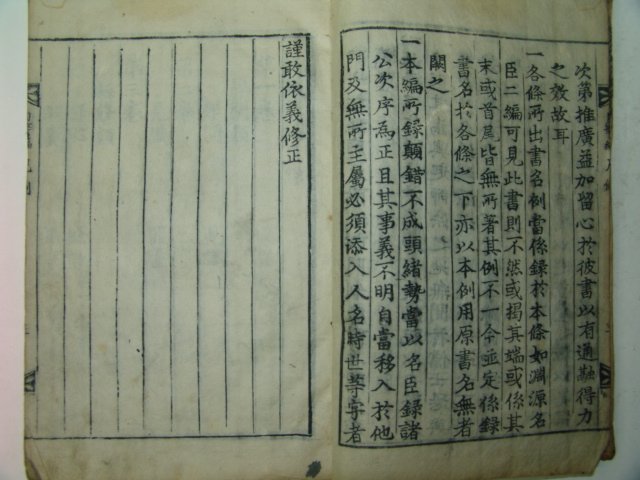 次第推廣益加留心於彼書以有通融得力
之效故耳
一各條所出書名例當係錄於本條如淵源名
臣二編可見此書則不然或揭其端或係其
末或首尾皆無所著其例不一今並定係錄
書名於各條之下亦以本例用原書名無者
闕之
一本編所錄顛錯不成頭緒勢當以名臣錄諸
公次序爲正且其事義不明自當移入於他
門及無所主屬必須添入人名時世等字者
謹敢依義修正